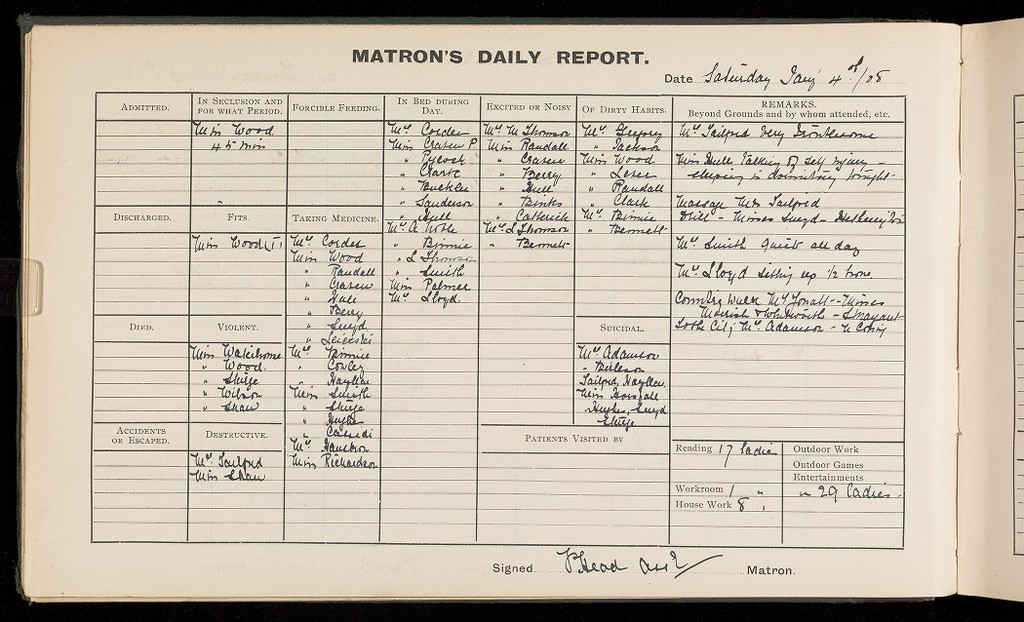 MATRON'S DAILY REPORT.
Date Saturday Jany 4th/08
ADMITTED.
IN SECLUSION AND FOR WHAT PERIOD.
Miss Wood
45 min
FORCIBLE FEEDING.
IN BED DURING DAY.
Mrs Corder
Miss Craven P.
" Pycock
" Clarke
" Buckler
" Sanderson
" Hull
Mrs A Noble
" Binnie
" L Thomson
" Smith
Miss Palmer
Mrs Lloyd.
EXCITED OR NOISY
Mrs M Thomson
Miss Randall
" Craven
" Berry
" Hull
" Binks
" Catterick
Mrs L Thomson
" Bennett
OF DIRTY HABITS.
Mrs Gregory
" Jackson
Miss Wood
" Lever
" Randall
" Clark
Mrs Binnie
" Bennett
REMARKS.
Beyond Grounds and by whom attended, etc.
Mrs Tailford Very Troublesome
Miss Hull Talking of self injury -
sleeping in dormitory tonight -
Massage Mrs Tailford
Drill - Misses Lloyd -
Mrs Smith quiet all day
Mrs Lloyd sitting up 1/2 hour.
Country Walk Mrs - Misses
& Whitworth -
To the City Mrs Adamson -
DISCHARGED.
FITS.
Miss Wood (1)
TAKING MEDICINE.
Mrs Corder
Miss Wood
" Randall
" Craven
" Hull
" Berry
" Lloyd
" Leicester
Mrs Binnie
" Cowley
" Hayllar
Miss Smith
" Sturge
" Hughes
" Cassidi
Mrs
Miss Richardson
DIED.
VIOLENT.
Miss Waterhouse
" Wood.
" Sturge
" Wilson
" Shaw
SUICIDAL.
Mrs Adamson
"
Tailford, Hayllar
Miss Horsfall
Hughes, Lloyd
Sturge
ACCIDENTS OR ESCAPED.
DESTRUCTIVE.
Mrs Tailford
Miss Shaw
PATIENTS VISITED BY
Reading 17 ladies
Workroom 1 "
House Work 8 "
Outdoor Work
Outdoor Games
Entertainments
" 29 ladies.
Signed Head Matron.